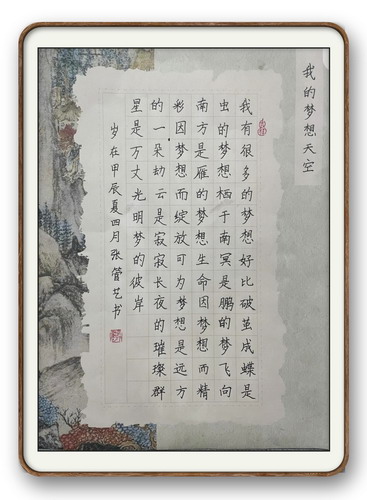 我的梦想天空
我有很多的梦想好比破茧成蝶是
虫的梦想栖于南冥是鹏的梦飞向
南方是雁的梦想生命因梦想而精
彩因梦想而绽放可为梦想是远方
的一朵劫云是寂寂长夜的璀璨群
星是万丈光明梦的彼岸
岁在甲辰夏四月张管艺书